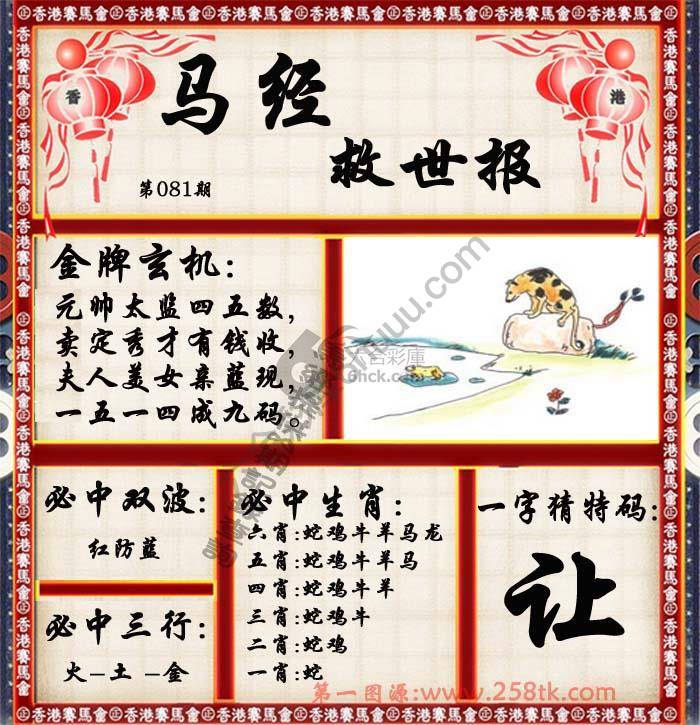 香港賽馬會
香
港
马经
救世报
第081期
金牌玄机:
元帅太监四五数,
卖定秀才有钱收,
夫人美女亲蓝现,
一五一四成九码。
必中双波:
红防蓝
必中三行:
火-土-金
必中生肖:
六肖:蛇鸡牛羊马龙
五肖:蛇鸡牛羊马
四肖:蛇鸡牛羊
三肖:蛇鸡牛
二肖:蛇鸡
一肖:蛇
一字猜特码:
让
第一图源:www.258tk.com